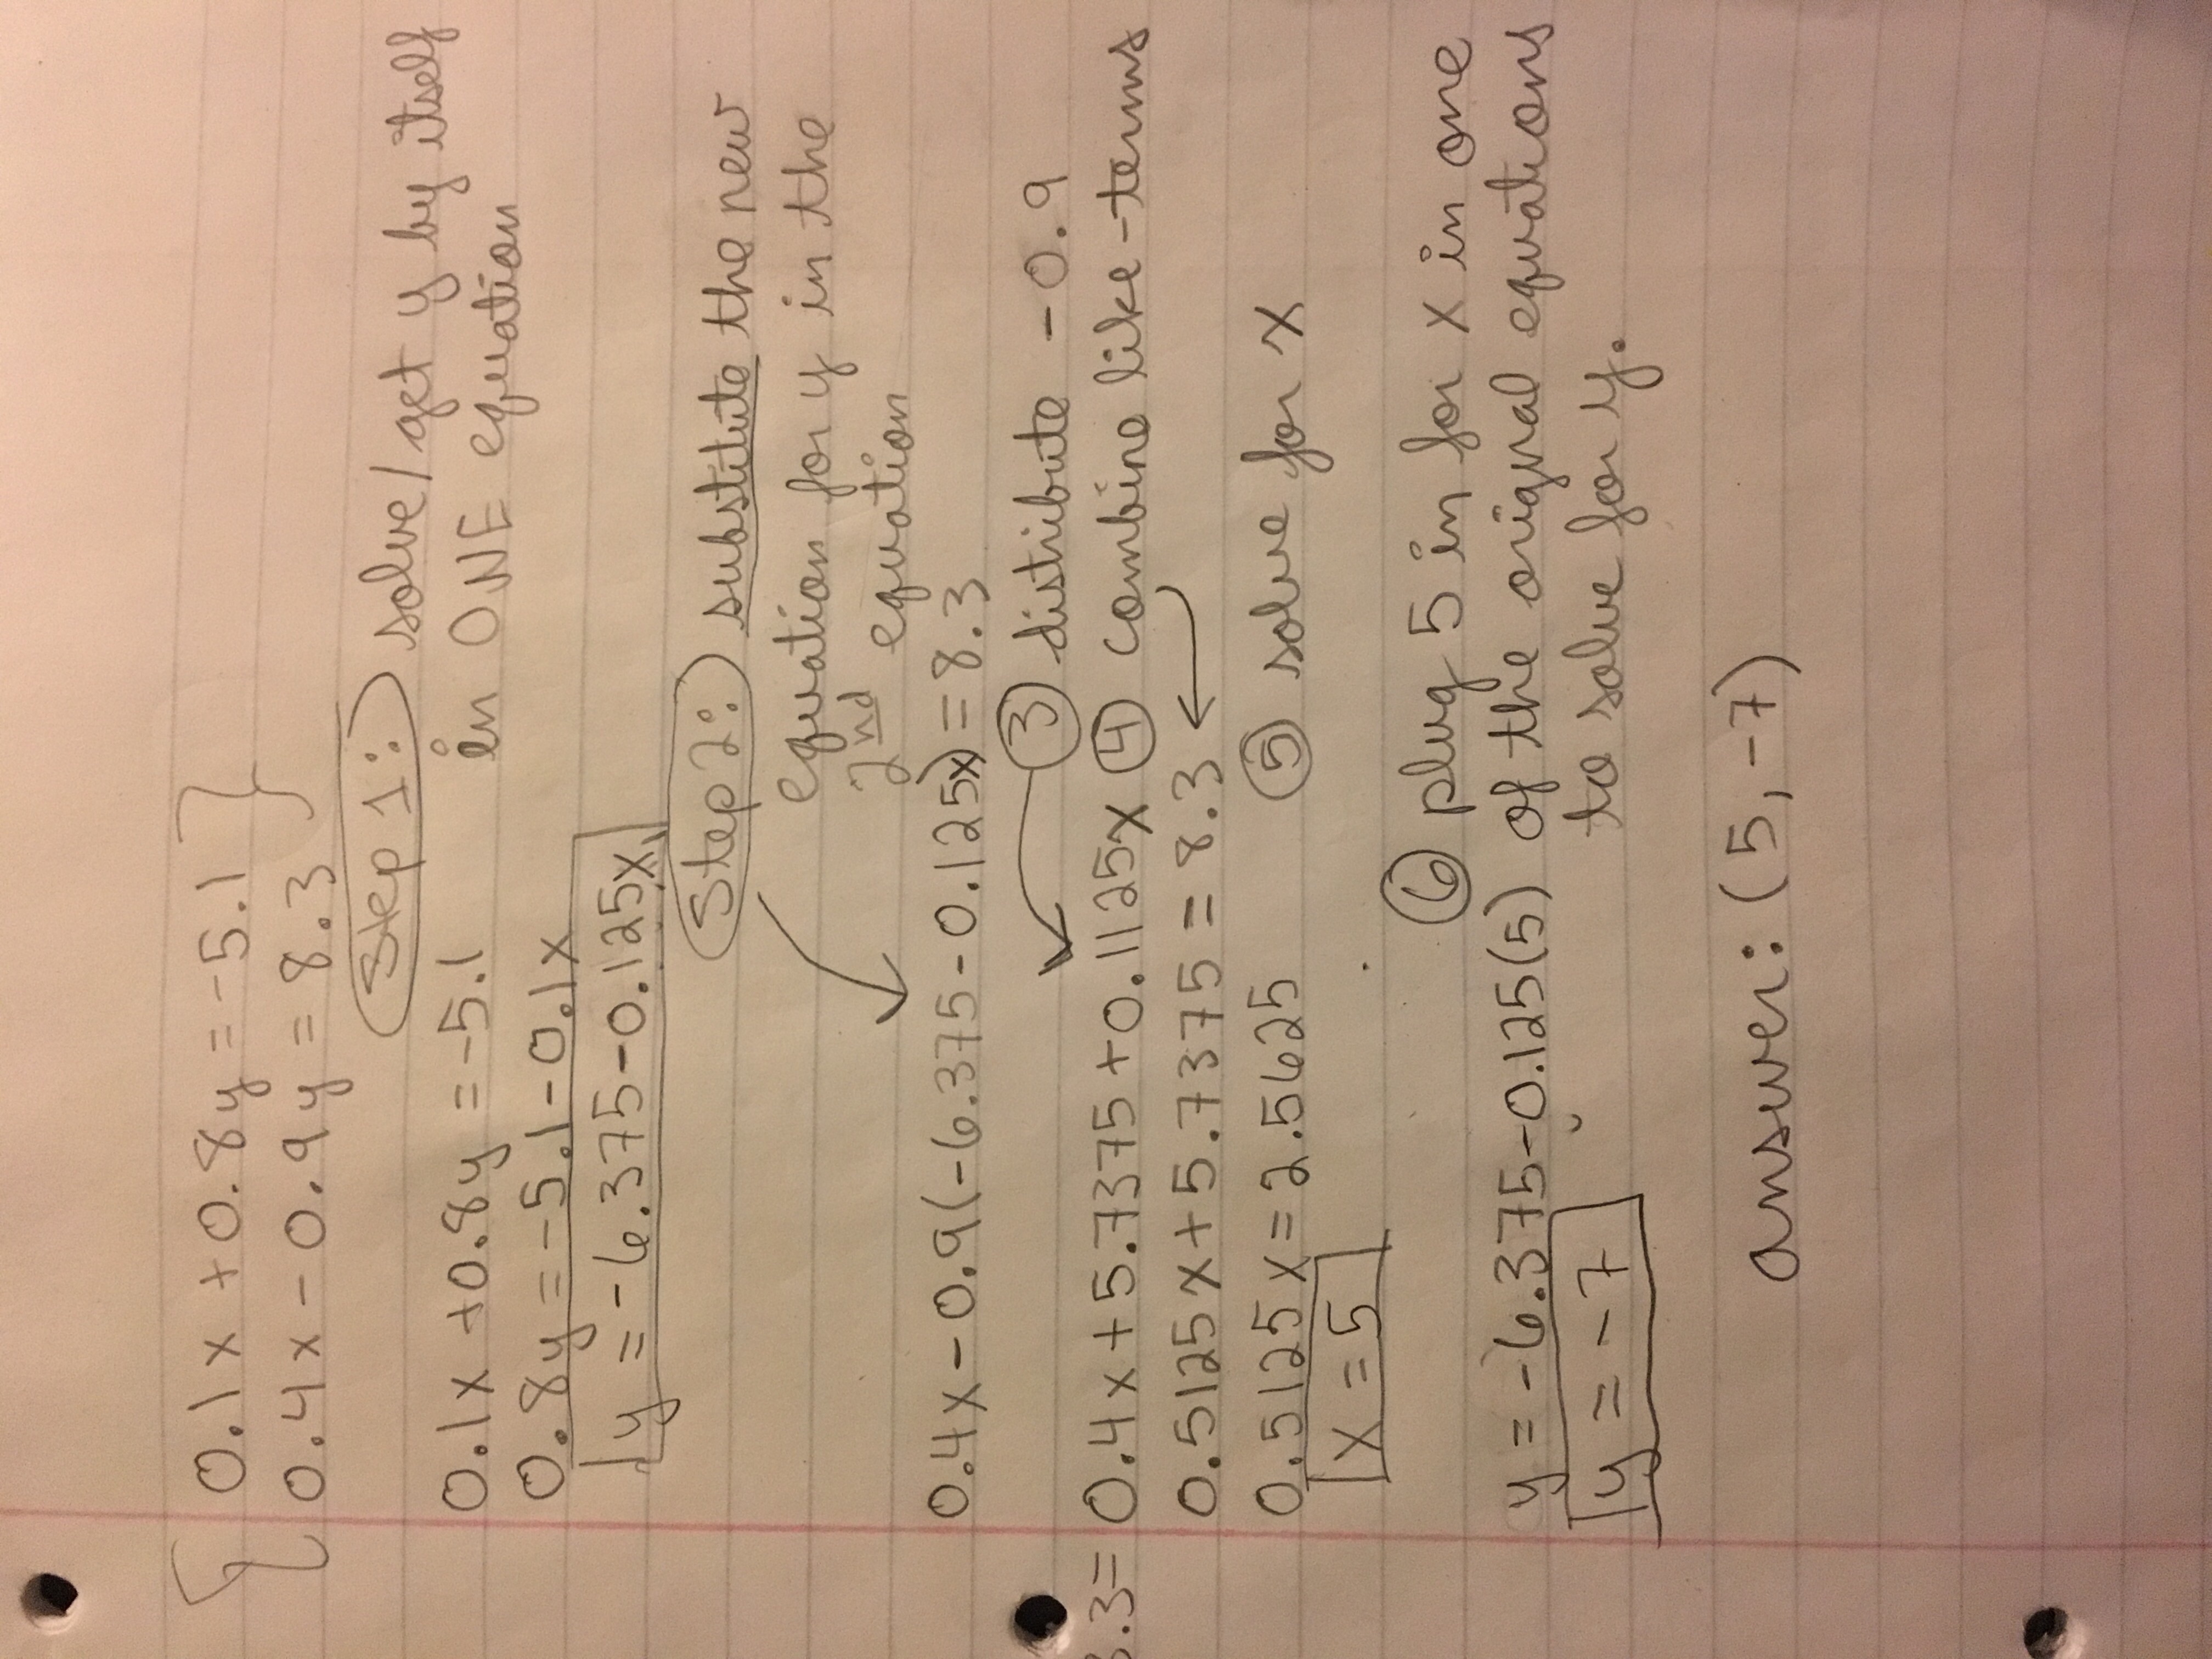 { 0.1x + 0.8y = -5.1 }
0.4x - 0.9y = 8.3
Step 1: solve/get y by itself
in ONE equation
0.1x + 0.8y = -5.1
0.8y = -5.1 - 0.1x
y = -6.375 - 0.125x
Step 2: substitute the new
equation for y in the
2nd equation
0.4x - 0.9(-6.375 - 0.125x) = 8.3
③ distribute -0.9
.3= 0.4x + 5.7375 + 0.1125x ④ combine like-terms
0.5125x + 5.7375 = 8.3
0.5125x = 2.5625 ⑤ solve for x
x = 5
⑥ plug 5 in for x in one
y = -6.375 - 0.125(5) of the original equations
y = -7 to solve for y.
answer: (5, -7)